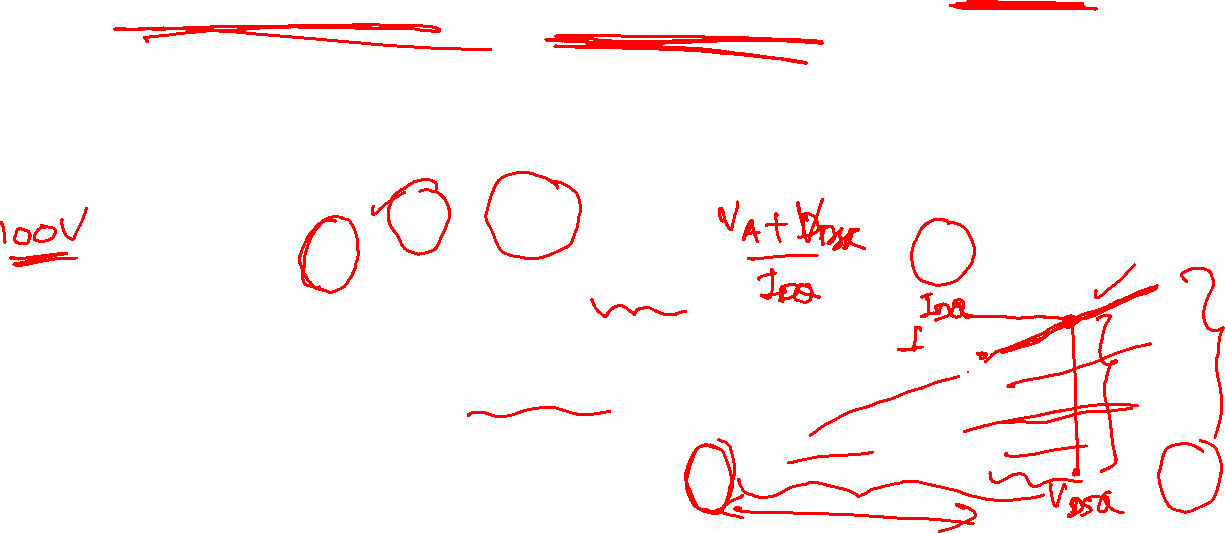 100V
V_A + V_DSQ
I_DQ
I_DQ
I
V_DSQ